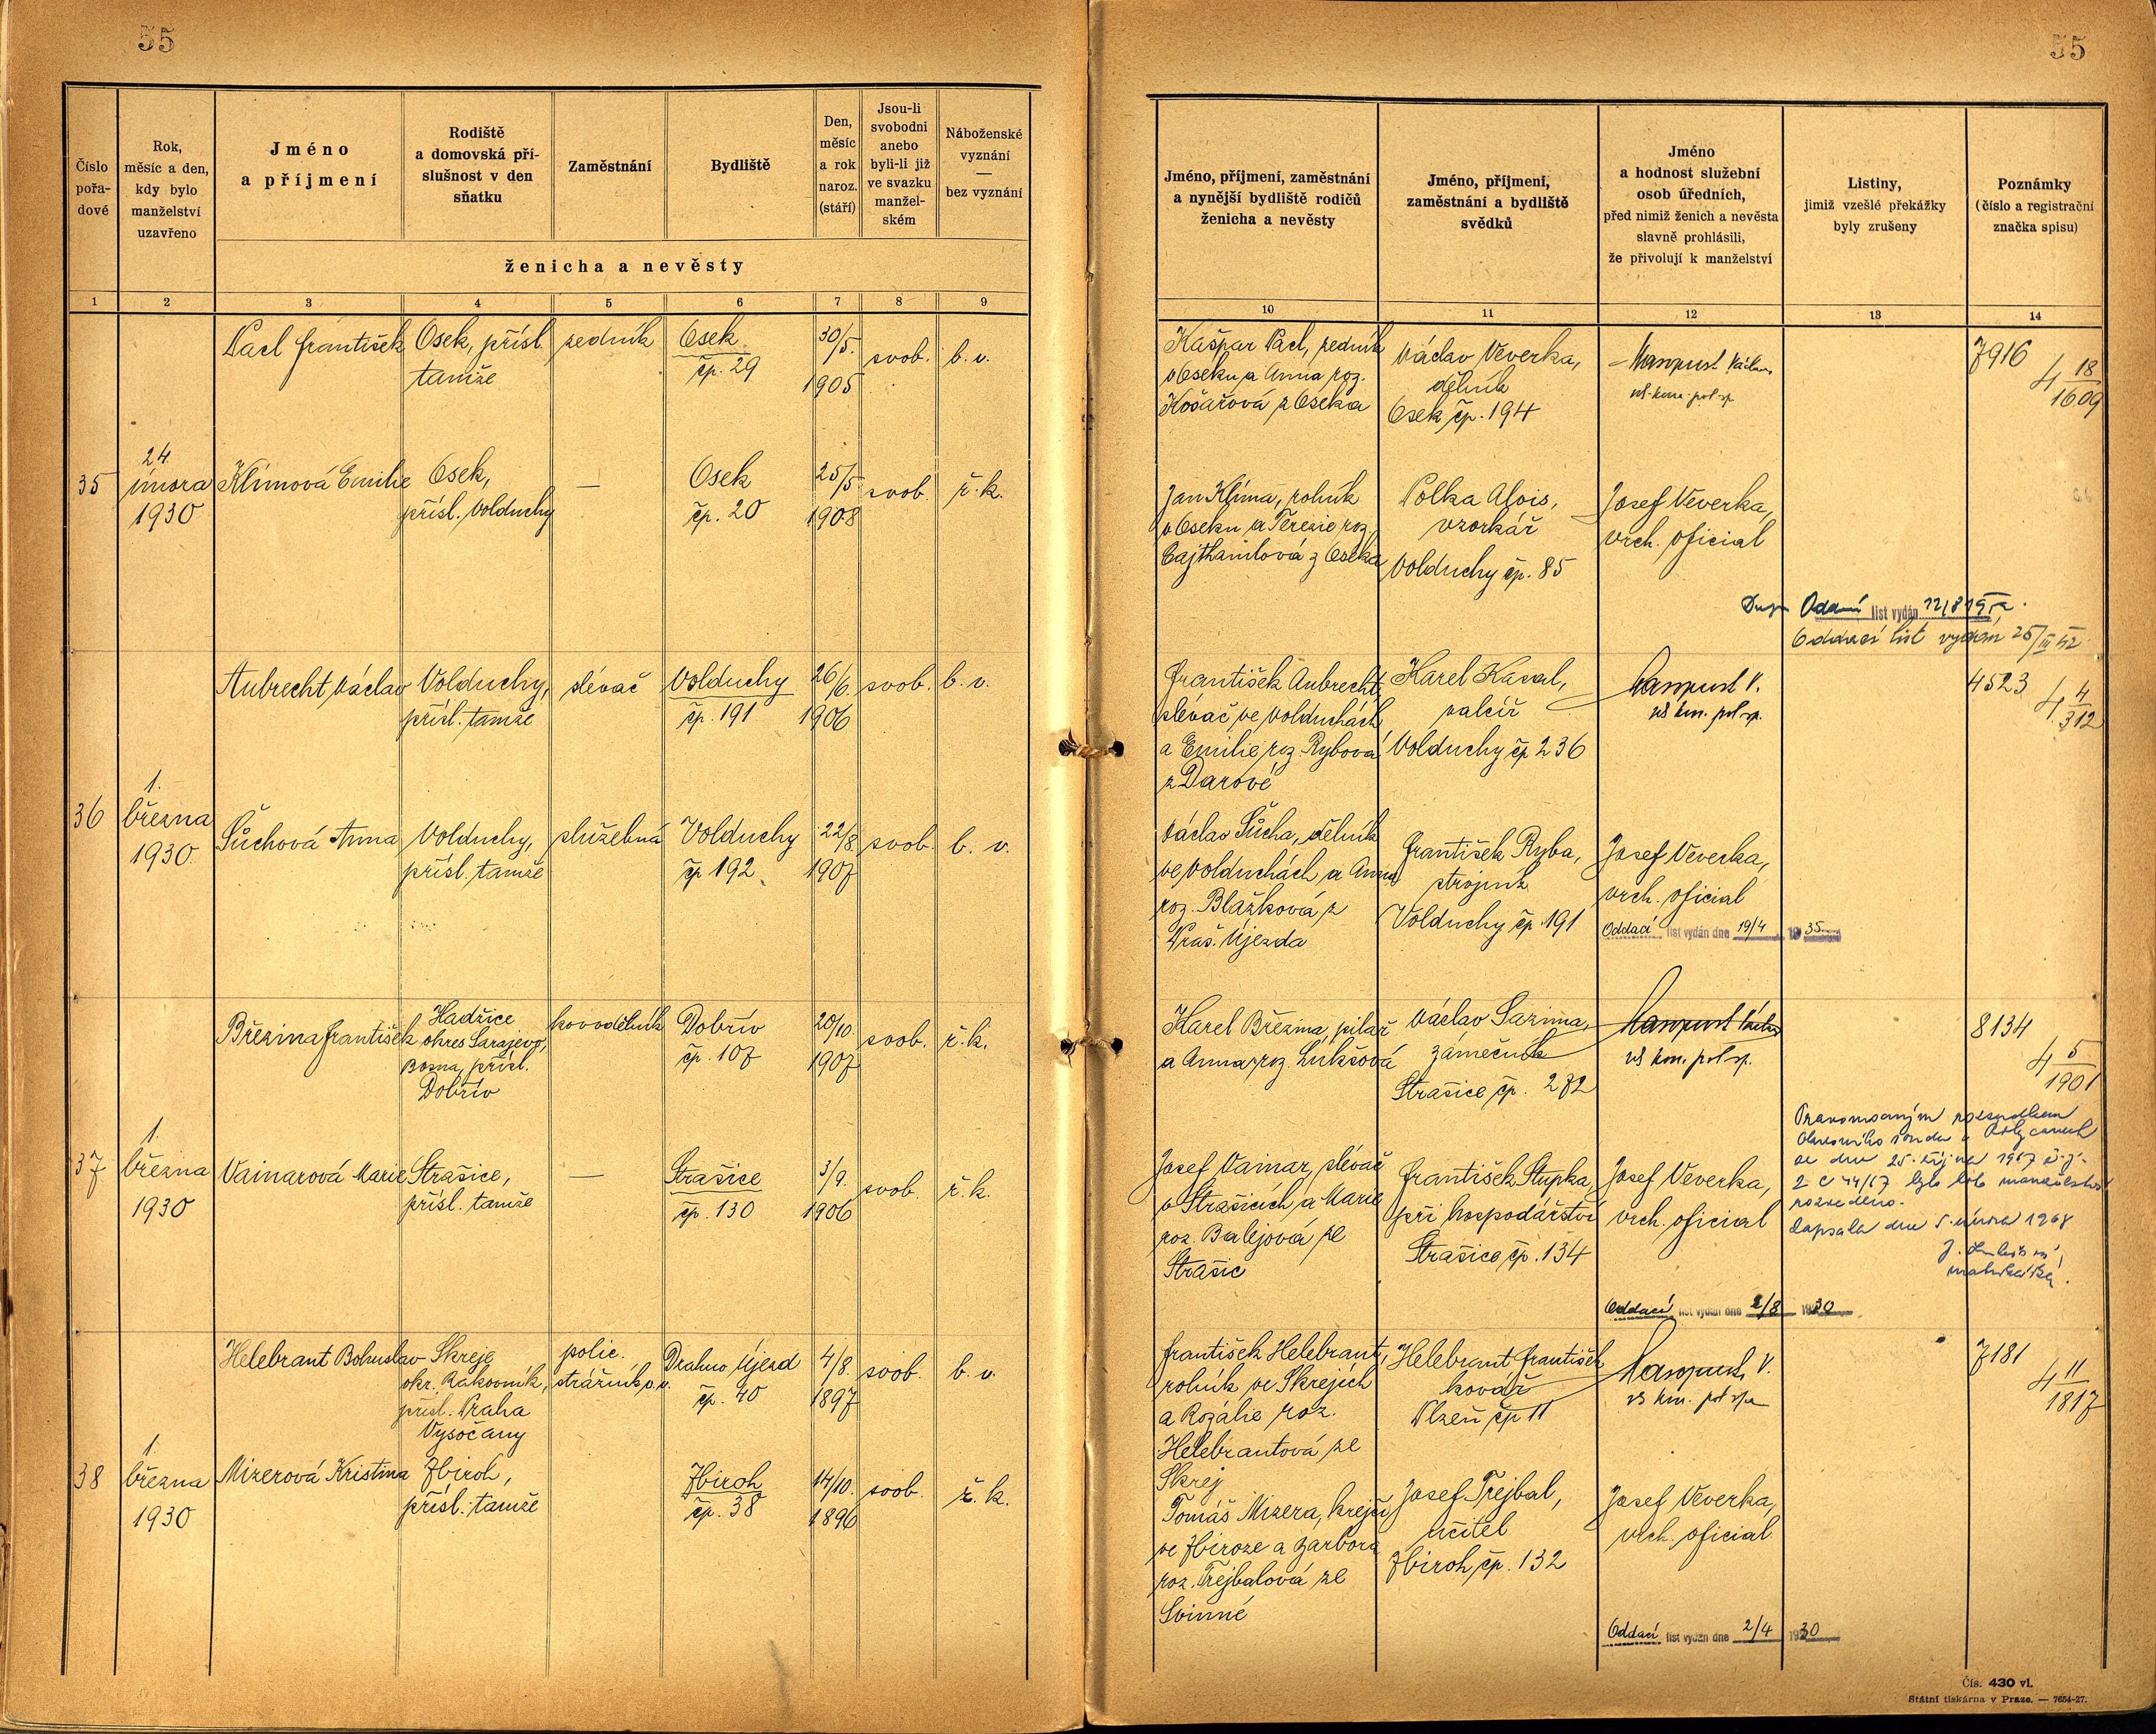 55
Číslo
pořa-
dové
Rok,
měsíc a den,
kdy bylo
manželství
uzavřeno
Jméno
a příjmení
Rodiště
a domovská pří-
slušnost v den
sňatku
Zaměstnání
Bydliště
Den,
měsíc
a rok
naroz.
(stáří)
Jsou-li
svobodni
anebo
byli-li již
ve svazku
manžel-
ském
Náboženské
vyznání
—
bez vyznání
ženicha a nevěsty
1 2 3 4 5 6 7 8 9
Pacl František
Osek, přísl.
tamže
zedník
Osek
čp. 29
30/5.
1905
svob.
b. v.
35
24.
února
1930
Klímová Emilie
Osek,
přísl. Volduchy
—
Osek
čp. 20
25/5
1908
svob.
ř. k.
Aubrecht Václav
Volduchy,
přísl. tamže
slévač
Volduchy
čp. 191
26/6.
1906
svob.
b. v.
36
1.
března
1930
Šůchová Anna
Volduchy,
přísl. tamže
služebná
Volduchy
čp 192
22/8
1907
svob.
b. v.
Březina František
Hadžice
okres Sarajevo,
Bosna, přísl.
Dobřív
kovodělník
Dobřív
čp. 107
20/10.
1907
svob.
ř. k.
37
1.
března
1930
Vainarová Marie
Strašice,
přísl. tamže
—
Strašice
čp. 130
3/9.
1906
svob.
ř. k.
Helebrant Bohuslav
Skreje
okr. Rakovník,
přísl. Praha
Vysočany
polic.
strážník v. v.
Drahno Újezd
čp. 40
4/8.
1897
svob.
b. v.
38
1.
března
1930
Mizerová Kristina
Zbiroh,
přísl. tamže
Zbiroh
čp. 38
14/10.
1896
svob.
ř. k.
55
Jméno, příjmení, zaměstnání
a nynější bydliště rodičů
ženicha a nevěsty
Jméno, příjmení,
zaměstnání a bydliště
svědků
Jméno
a hodnost služební
osob úředních,
před nimiž ženich a nevěsta
slavně prohlásili,
že přivolují k manželství
Listiny,
jimiž vzešlé překážky
byly zrušeny
Poznámky
(číslo a registrační
značka spisu)
10 11 12 13 14
Kašpar Pacl, zedník
v Oseku a Anna roz.
Košařová z Oseka
Václav Veverka,
dělník
Osek čp. 194
Václav
7916
4 18/1609
Jan Klíma, rolník
v Oseku a Terezie roz.
Cajthamlová z Oseka
Polka Alois,
vzorkář
Volduchy čp. 85
Josef Veverka,
vrch. oficial
list vydán
Oddací list vydán 25/III 42
František Aubrecht,
slévač ve Volduchách
a Emilie roz. Rybová
z Darové
Karel Kaval,
valcíř
Volduchy čp 236
V.
4523
4 4/312
Václav Šůcha, dělník
ve Volduchách a Anna
roz. Blažková z
Praš. Újezda
František Ryba,
strojník
Volduchy čp. 191
Josef Veverka,
vrch. oficial
Oddací list vydán dne 19/4 1935
Karel Březina, pilař
a Anna roz. Lukšová
Václav Sazima,
zámečník
Strašice čp. 272
8134
4 5/1901
Josef Vainar, slévač
v Strašicích a Marie
roz. Balejová ze
Strašic
František Stupka,
při hospodářství
Strašice čp. 134
Josef Veverka,
vrch. oficial
Pravomocným rozsudkem
okresního soudu v Rokycanech
ze dne 25. října 1967 č.j.
2 C 44/67 bylo toto manželství
rozvedeno.
Zapsala dne 5. února 1968
matrikářka.
Oddací list vydán dne 2/8 1930
František Helebrant,
rolník ve Skrejích
a Rozálie roz.
Helebrantová ze
Skrej
Helebrant František
kovář
Plzeň čp 11
V.
7181
4 11/1817
Tomáš Mizera, krejčí
ve Zbiroze a Barbora
roz. Trejbalová ze
Svinné
Josef Trejbal,
učitel
Zbiroh čp. 132
Josef Veverka,
vrch. oficial
Oddací list vydán dne 2/4 1930
Čís. 430 vl.
Státní tiskárna v Praze. — 7654-27.